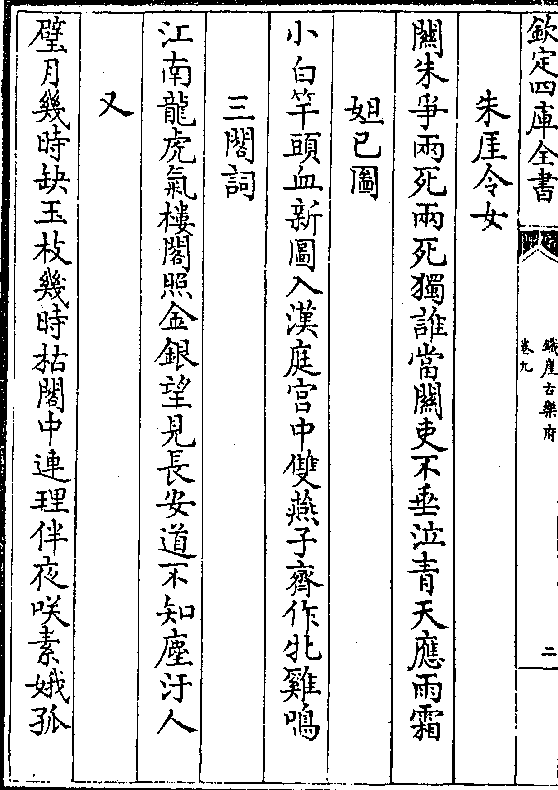 欽定四庫全書
鐵崖古樂府
卷九
二
朱厓令女
關朱爭兩死兩死獨誰當關吏不垂泣青天應雨霜
妲已圖
小白竿頭血新圖入漢庭宫中雙燕子齊作牝雞鳴
三閣詞
江南龍虎氣樓閣照金銀望見長安道不知塵汙人
又
璧月幾時缺玉枝幾時枯閣中連理伴夜咲素娥孤